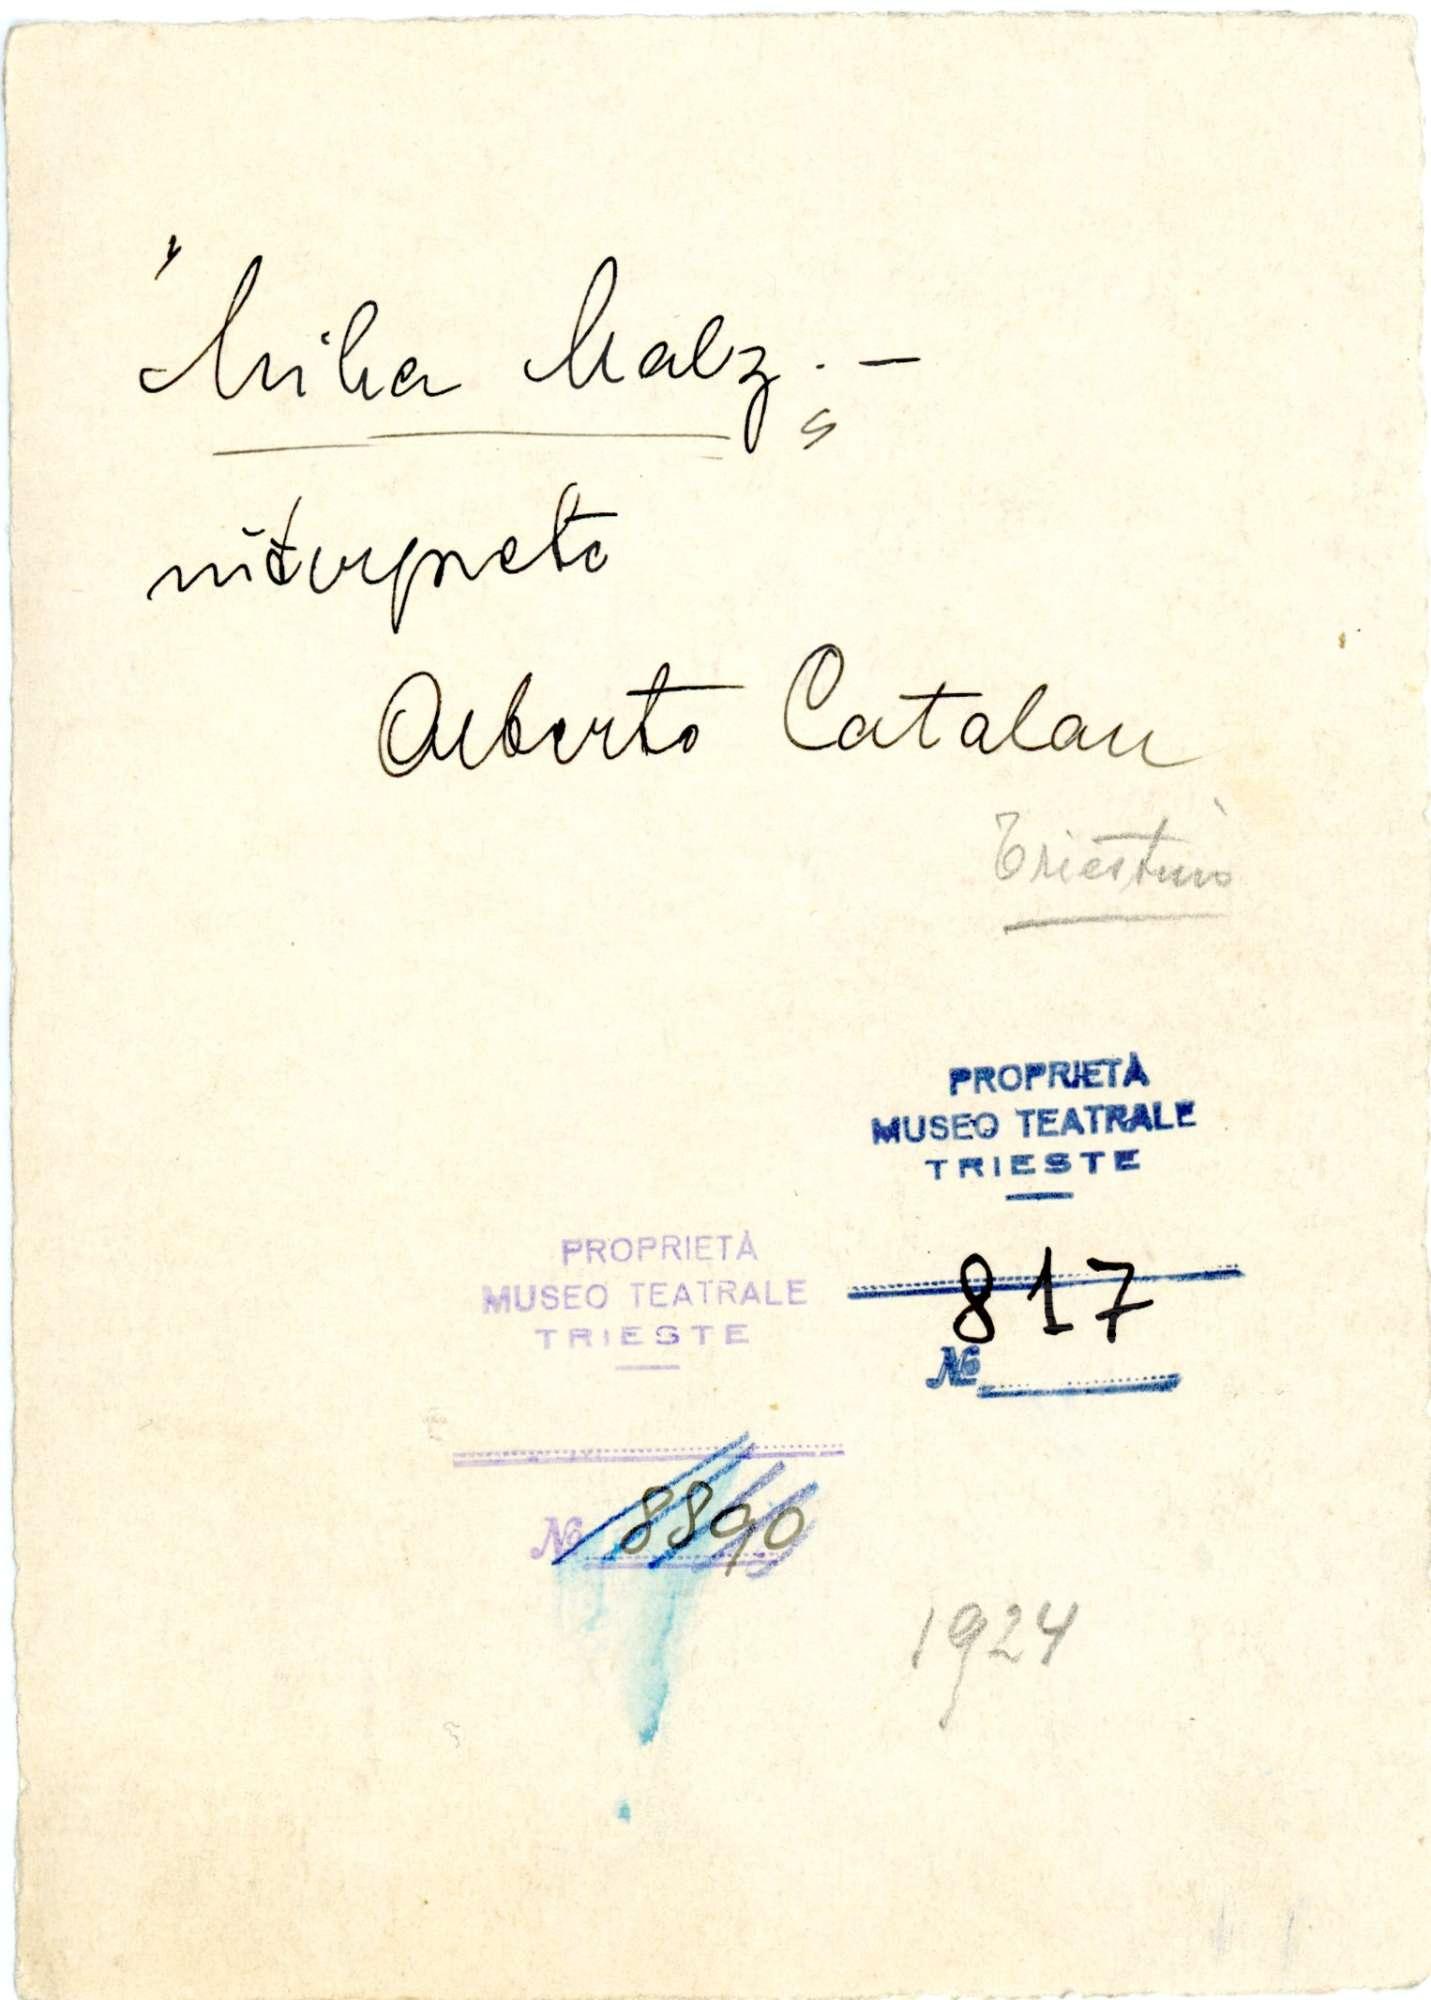 " Mika Malz. —
s
interprete
Alberto Catalan
Triestino
PROPRIETÀ
MUSEO TEATRALE
TRIESTE
817
№
PROPRIETÀ
MUSEO TEATRALE
TRIESTE
№ 8890
1924